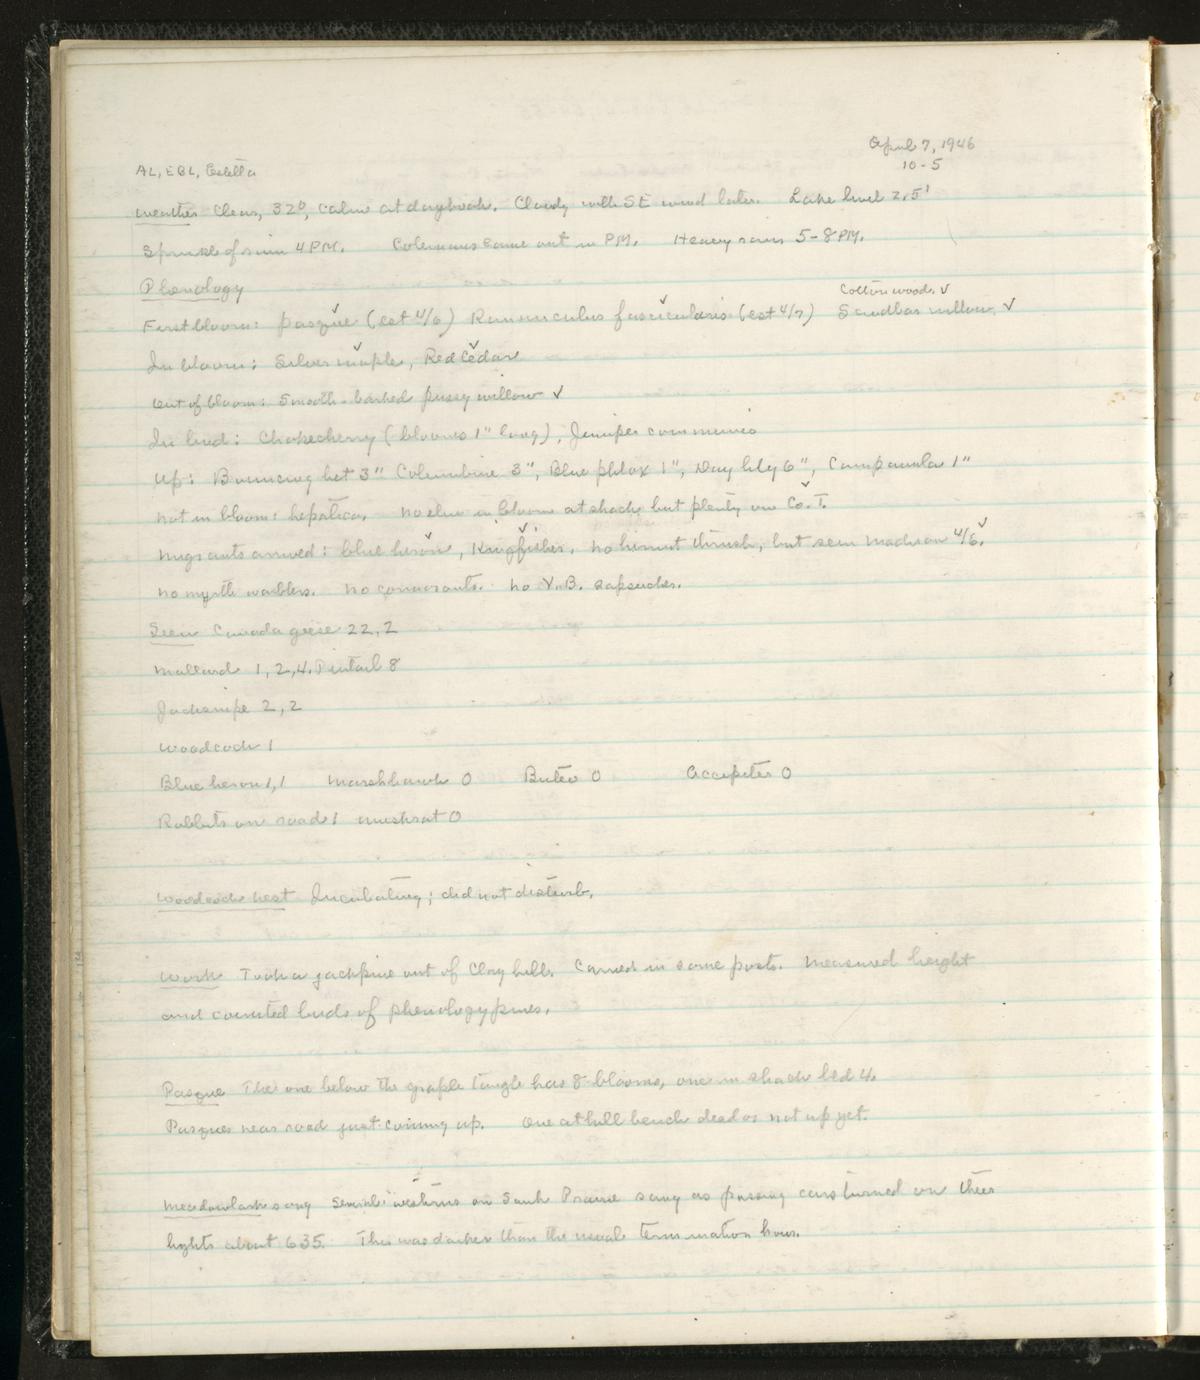 April 7, 1946
10-5
AL, EBL, Estella
Weather Clear, 32°, calm at daybreak. Cloudy with SE wind later. Lake level 2.5'
Sprinkle of rain 4 PM. Colemans came out in PM. Heavy rain 5-8 PM.
Phenology
Cottonwood. ✓
First bloom: pasque (est 4/6) Ranunculus fascicularis (est 4/7) Sandbar willow ✓
In bloom: Silver maple, Red Cedar
Out of bloom: Smooth-barked pussy willow ✓
In bud: Chokecherry (blooms 1" long), Juniper communis
Up: Bouncing bet 3" Columbine 3", Blue phlox 1", Day lily 6", Campanula 1"
Not in bloom: hepatica. No elm in bloom at shack but plenty on Co. T.
Migrants arrived: blue heron, Kingfisher. No hermit thrush, but seen Madison 4/6.
No myrtle warblers. No cormorants. No Y.B. sapsucker.
Seen Canada geese 22, 2
Mallard 1, 2, 4. Pintail 8
Jacksnipe 2, 2
Woodcock 1
Blue heron 1, 1 Marsh hawk 0 Buteo 0 Accipiter 0
Rabbits on road 1 muskrat 0
Woodcock nest Incubating; did not disturb.
Work Took a jackpine out of Clay hill. Carried in some posts. Measured height
and counted buds of phenology pines.
Pasque The one below the grape tangle has 8 blooms, one in shack bed 4.
Pasques near road just coming up. One at hill bench dead or not up yet.
Meadowlark song Several westerns on Sauk Prairie sang as passing cars turned on their
lights about 635. This was darker than the usual termination hour.